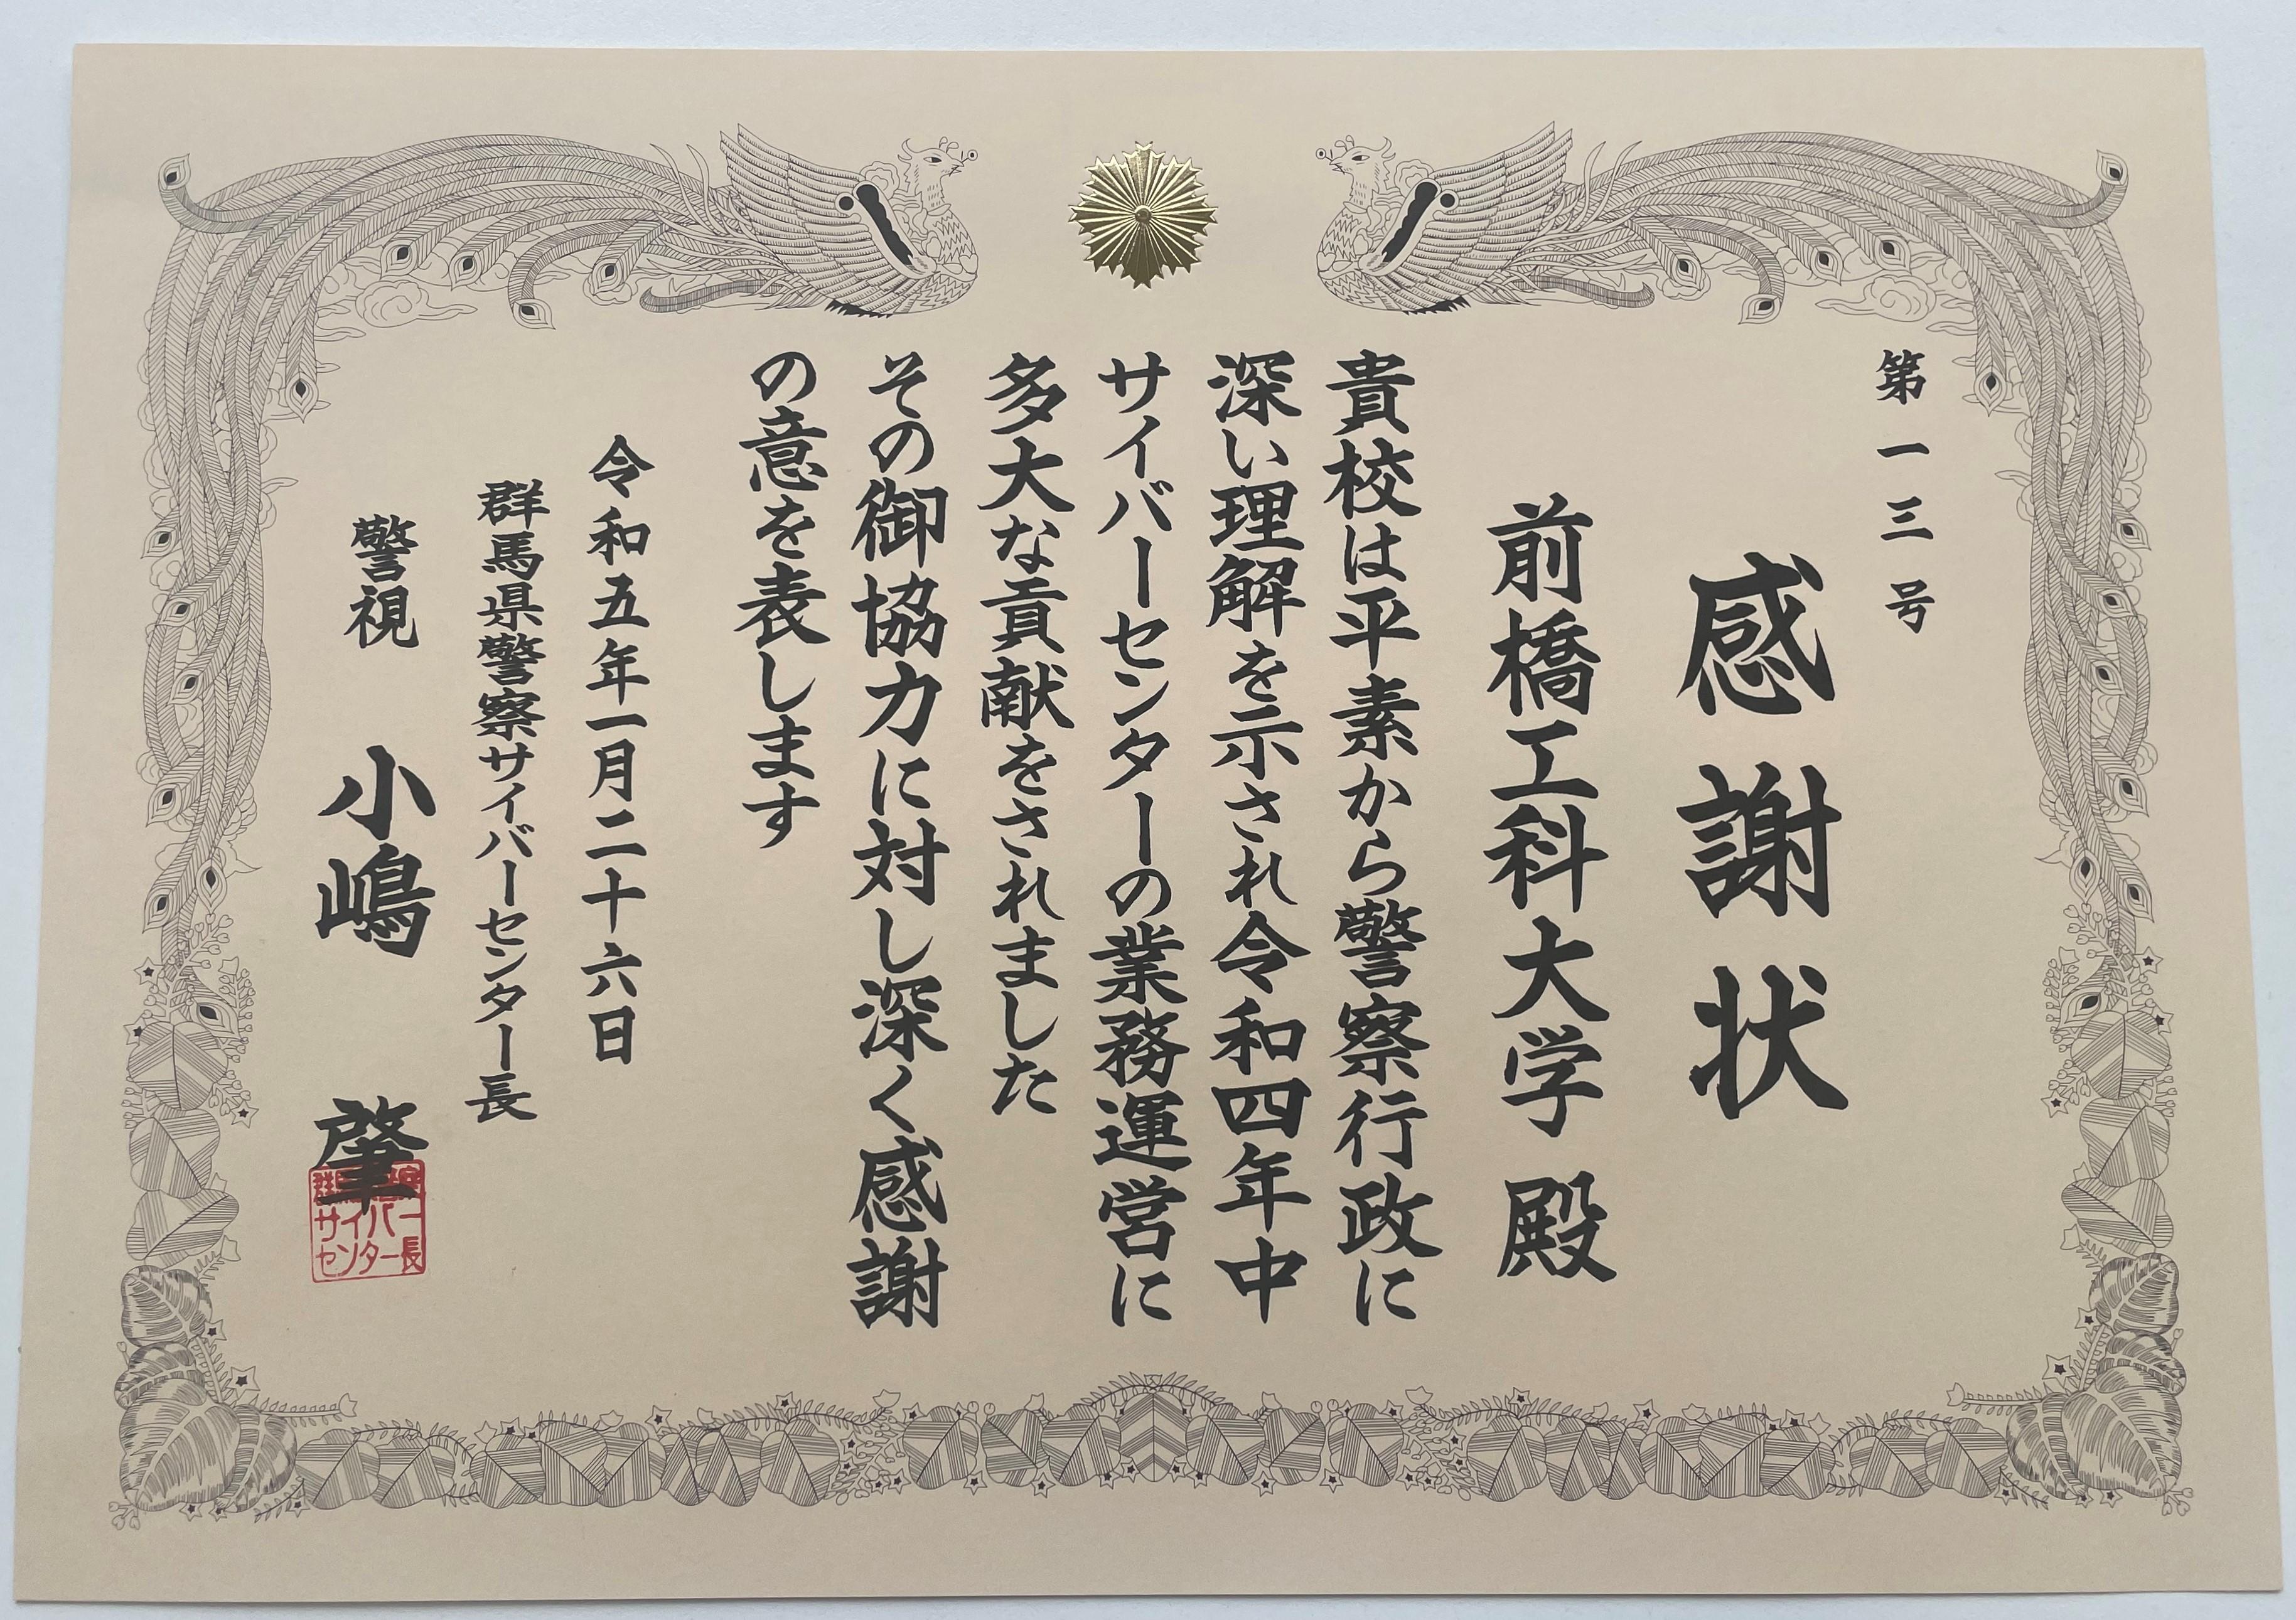 第一三号
感謝状
前橋工科大学 殿
貴校は平素から警察行政に
深い理解を示され令和四年中
サイバーセンターの業務運営に
多大な貢献をされました
その御協力に対し深く感謝
の意を表します
令和五年一月二十六日
群馬県警察サイバーセンター長
警視 小嶋 肇
サイバー
センター長